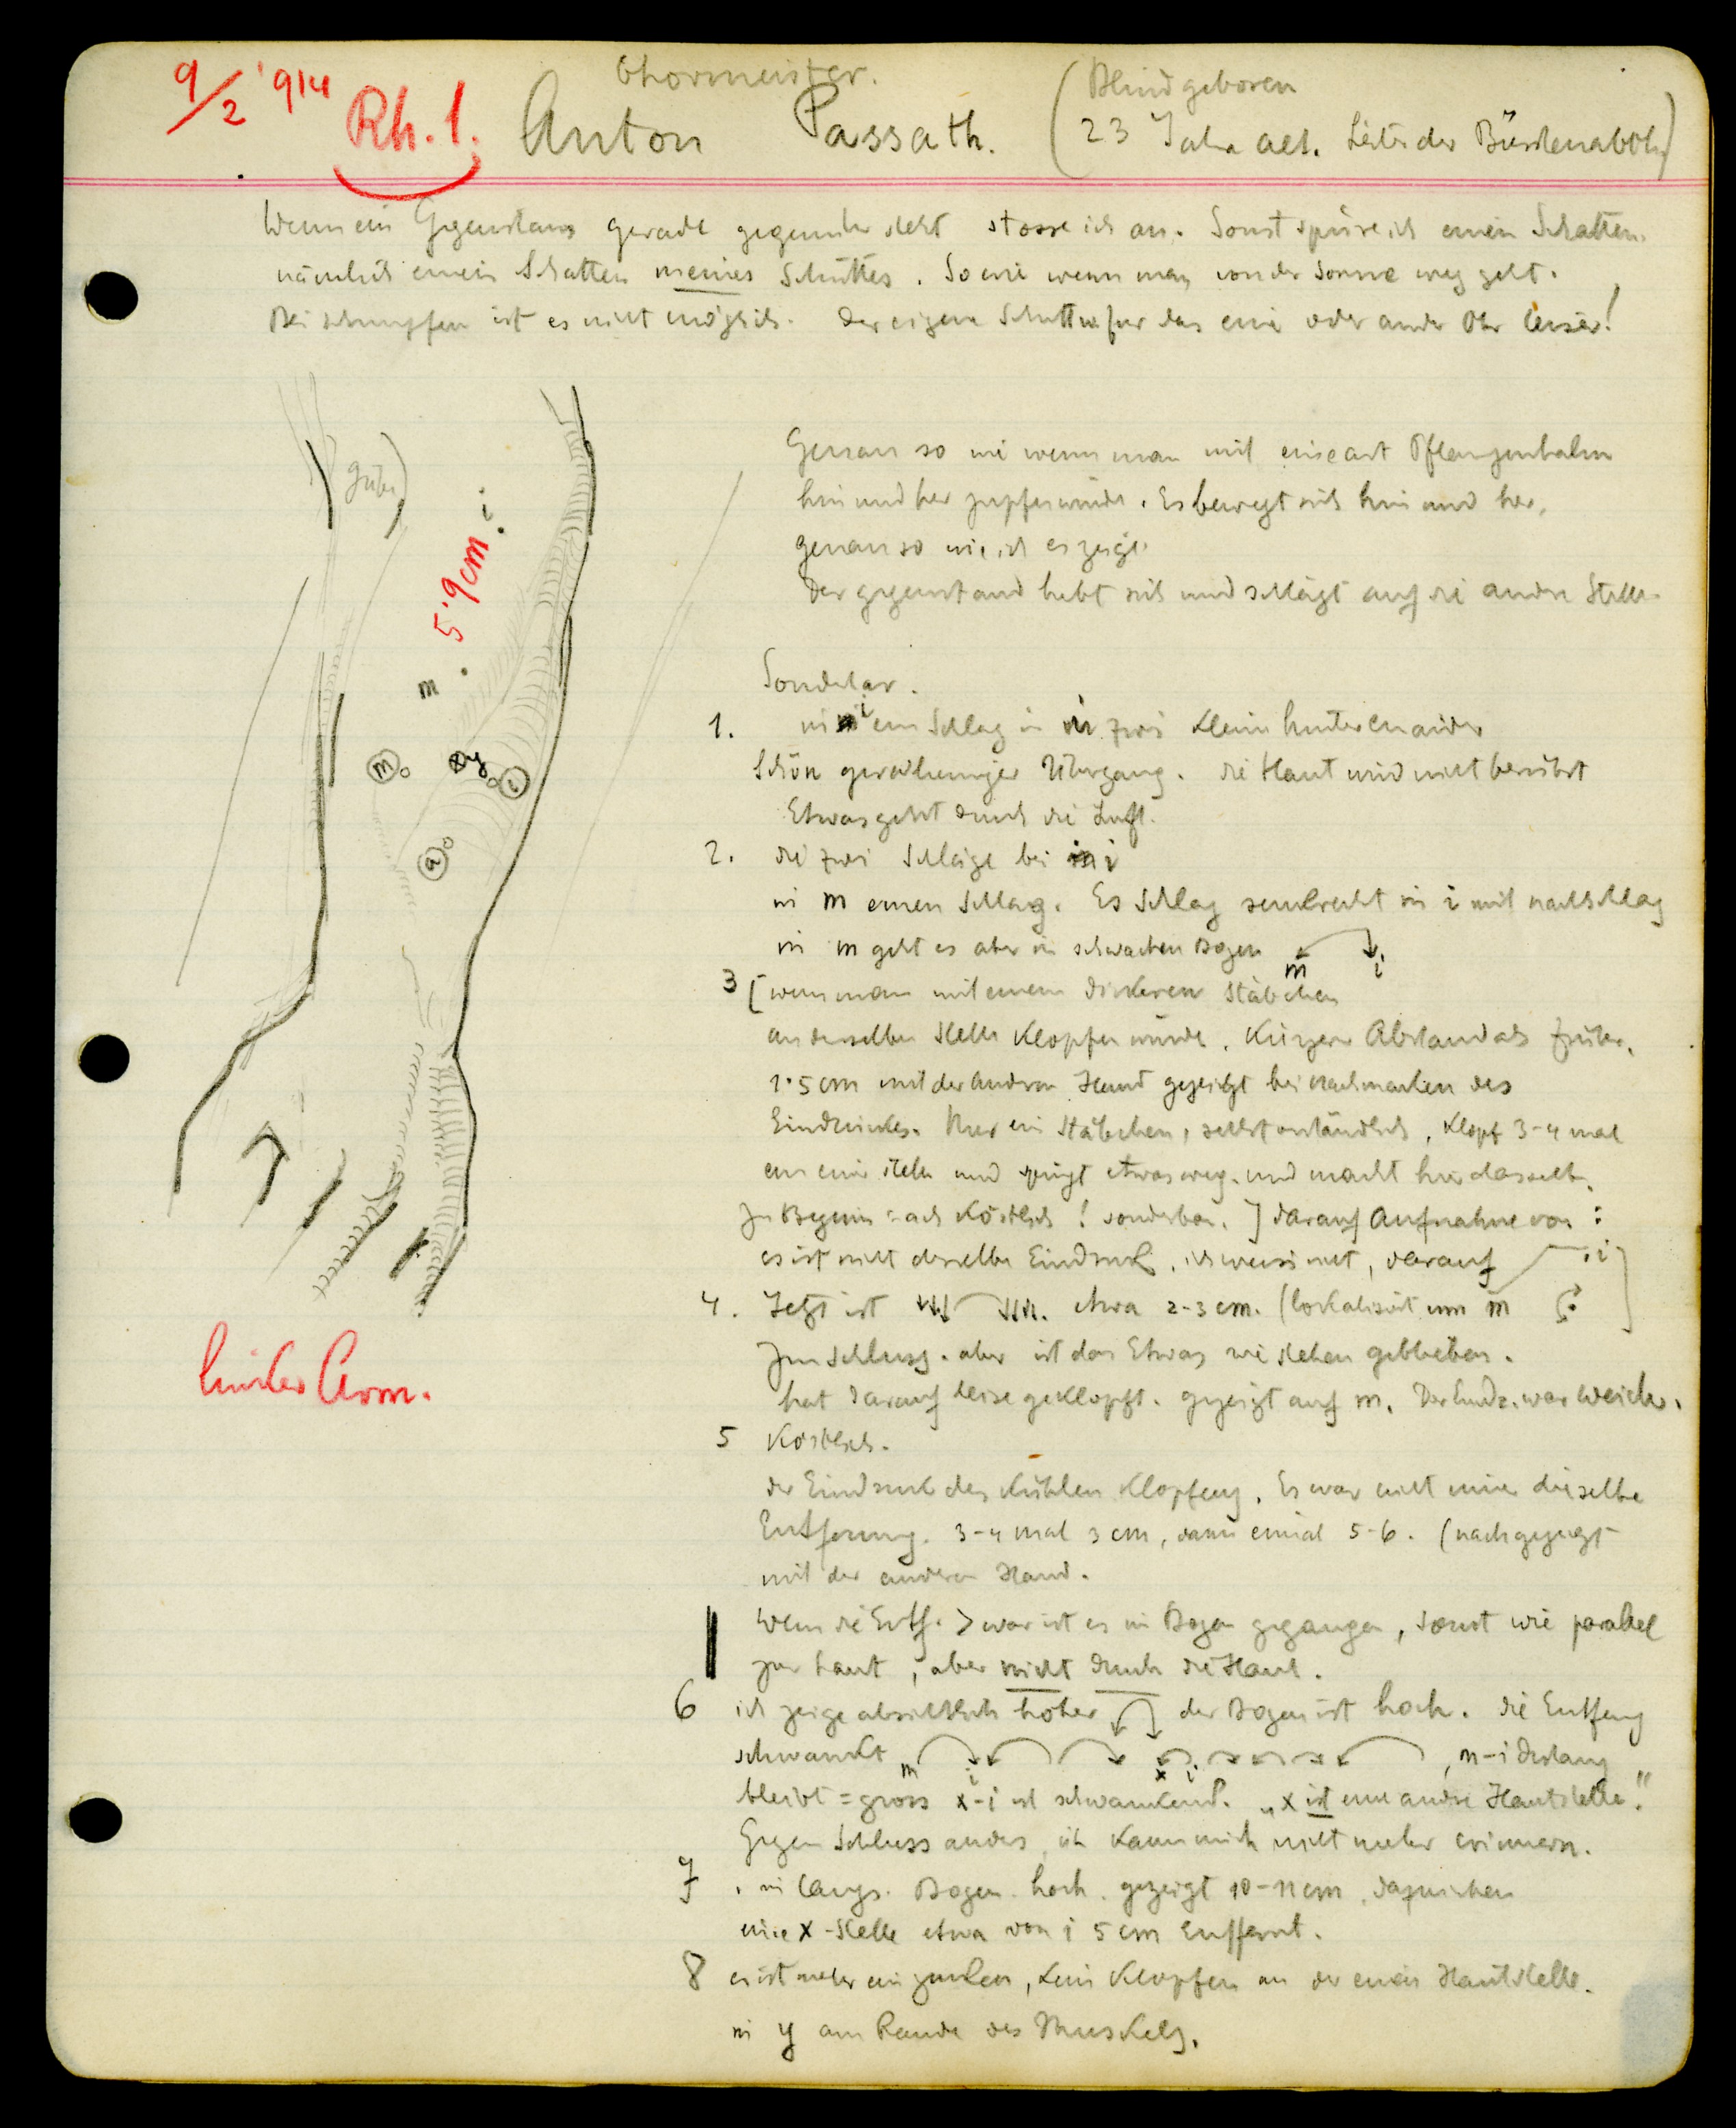 9/2 '914
Rh. 1.
Chormeister.
Anton Passath.
(Blindgeboren
23 Jahre alt. Leiter der Bürstenabtlg)
Wenn ein Gegenstand gerade gegenüber steht stosse ich an. Sonst spüre ich einen Schatten.
nämlich einen Schatten meines Schrittes. So wie wenn man von der Sonne weg geht.
Bei Schnupfen ist es nicht möglich. Der eigene Schritt für das eine oder andre Ohr leiser!
Genau so wie wenn man mit einer art Pflanzenhalm
hin und her zupfen würde. Es bewegt sich hin und her,
genau so wie ich es zeige.
Der gegenstand hebt sich und schlägt auf die andre Stelle
i
5'9 cm
m
m
xy
i
a
Sonderbar.
1. in i ein Schlag in m zwei klein hintereinander
Schön geräumiger Übergang. die Haut wird nicht berührt
Etwas geht durch die Luft.
2. die zwei Schläge bei i
in m einen Schlag. Es Schlag senkrecht in i mit nachschlag
in m geht es aber in schwachen Bogen
m i
3 [wenn man mit einem dickeren Stäbchen
an derselben Stelle Klopfen würde. Kürzerer Abstand als früher.
1·5 cm mit der andren Hand gezeigt bei nachmachen des
Eindruckes. Nur ein Stäbchen, selbstverständlich, klopf 3-4 mal
an eine Stelle und springt etwas weg. und macht hier dasselbe.
zu Beginn: ach Köstlich! sonderbar.] darauf Aufnahme von :
es ist nicht derselbe Eindruck, ich weiss nicht, darauf i
4. Jetzt ist etwa 2-3 cm. (lokalisiert um m
zum Schluss. aber ist das Etwas wie stehen geblieben.
hat darauf leise geklopft. gezeigt auf m. Der Eindr. war weicher.
5 Köstlich.
der Eindruck des kühlen Klopfens. Es war nicht immer dieselbe
Entfernung. 3-4 mal 3 cm, dann einmal 5-6. (nachgezeigt
mit der anderen Hand.
Wenn die Entf. > war ist es im Bogen gegangen, sonst wie parallel
zur Haut, aber nicht durch die Haut.
6 ich zeige absichtlich höher der Bogen ist hoch. die Entfng
schwankt m i x i, m-i Abstand
bleibt = gross x-i ist schwankend. „x ist eine andre Hautstelle."
Gegen Schluss anders, ich kann mich nicht mehr erinnern.
7 . in langs. Bogen. hoch. gezeigt 10-11 cm, dazwischen
eine x-Stelle etwa von i 5 cm Entfernt.
8 es ist mehr ein zucken, kein Klopfen an der einen Hautstelle.
in y am Rande des Muskels.
linker Arm.